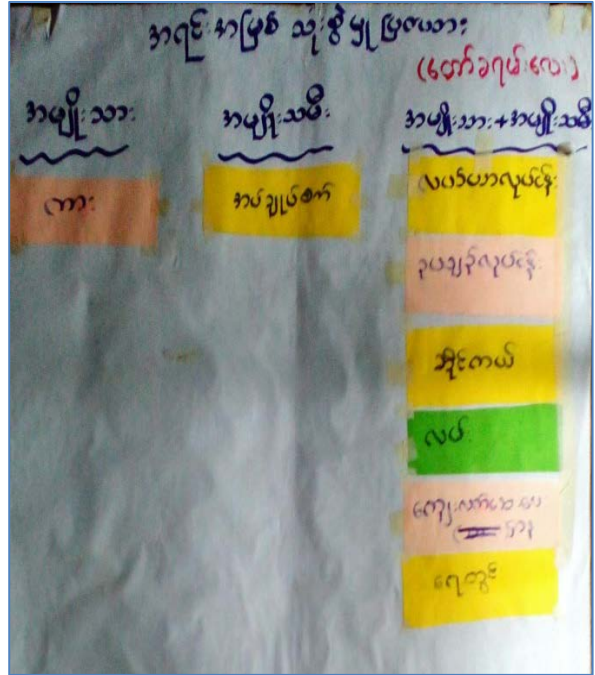 အရင်းအမြစ် သုံးစွဲမှု မြဇယား
(တော်ခရမ်းလေး)
အမျိုးသား
အမျိုးသမီး
အမျိုးသား+အမျိုးသမီး
ကား
အပ်ချုပ်စက်
လယ်ယာလုပ်ငန်း
ဥယျာဉ်လုပ်ငန်း
ဆိုင်ကယ်
လမ်း
ကျေးလက်ဆေးပေး
ဌာန
ရေတွင်း